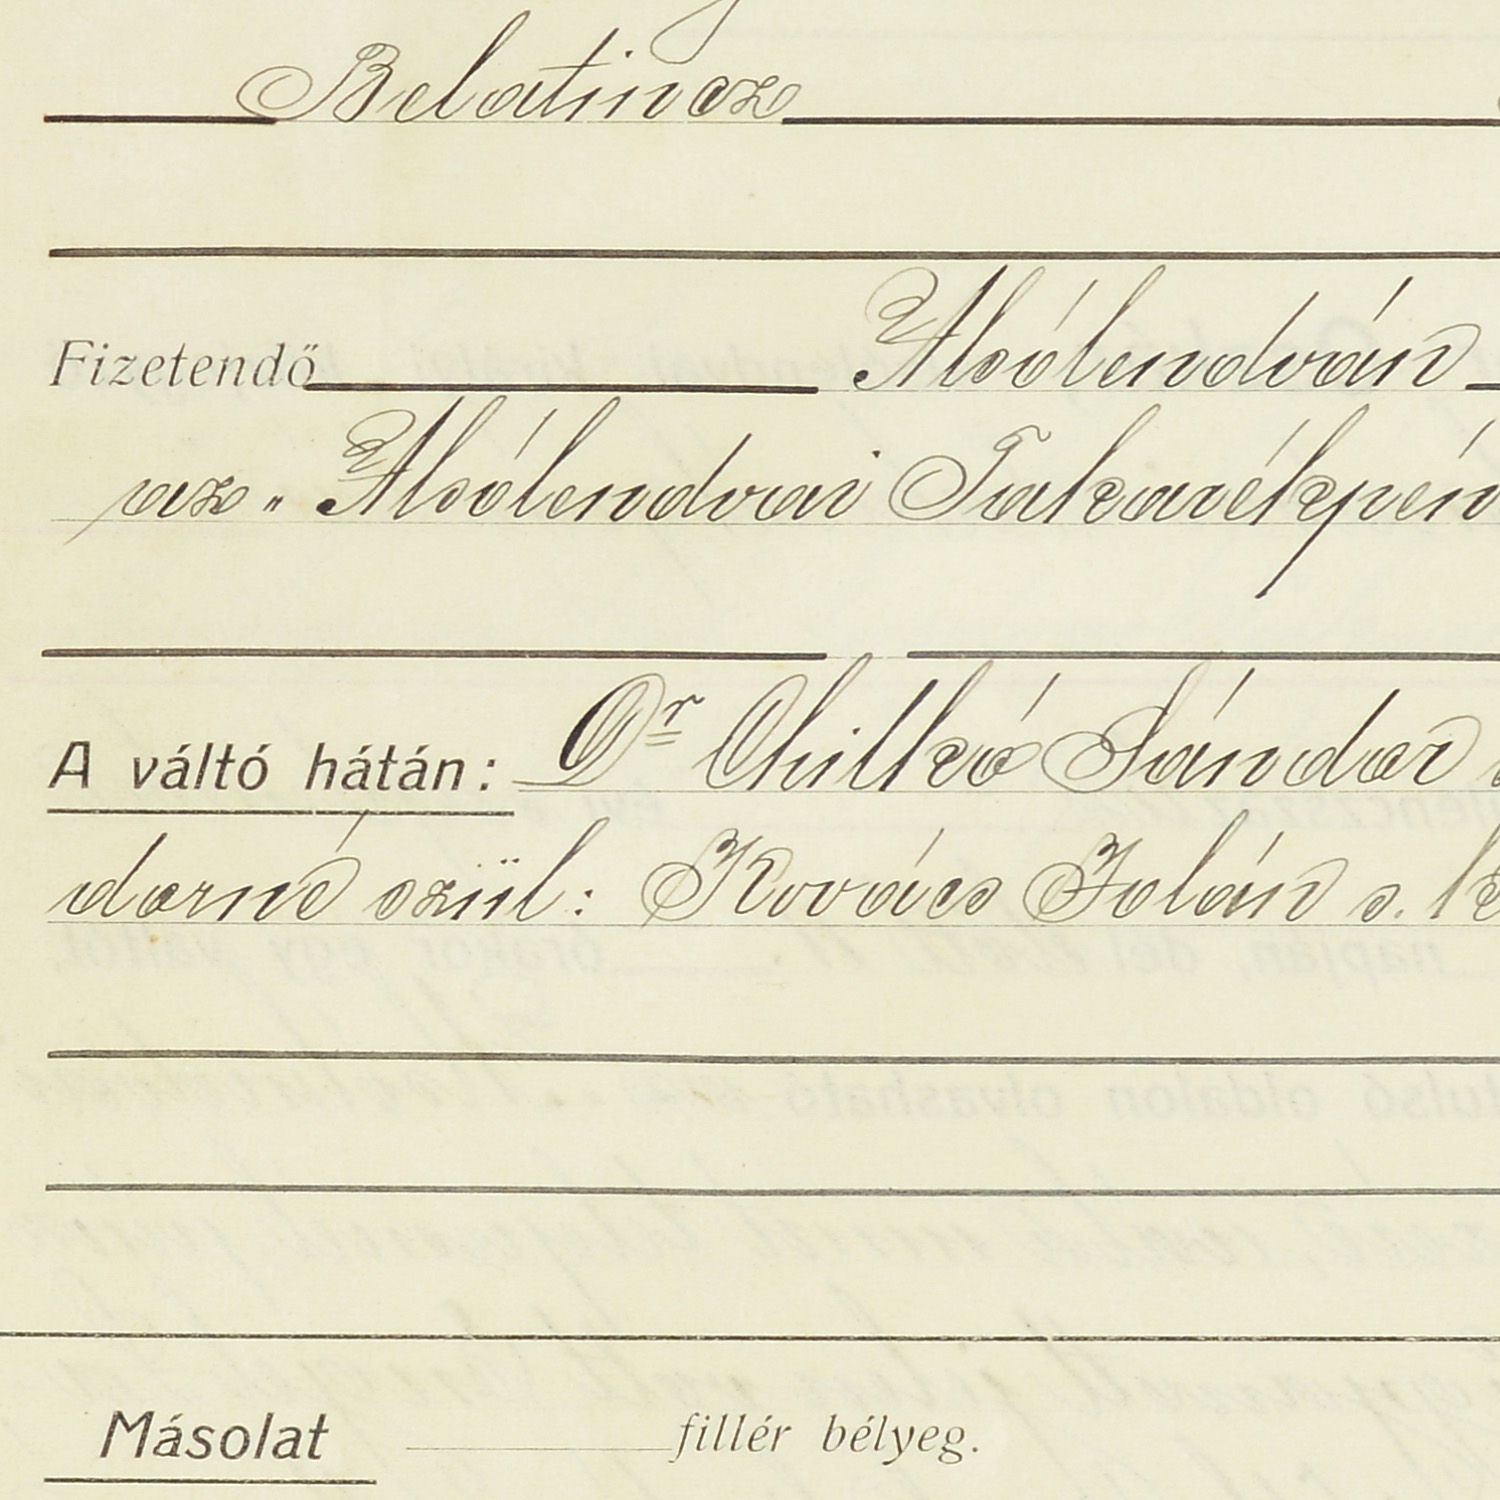 Belatincz
Fizetendő Alsólendván
az „ Alsólendvai Takarékpén
A váltó hátán: Dr Chilkó Sándor
dorné szül: Kovács Jolán s. k
Másolat fillér bélyeg.